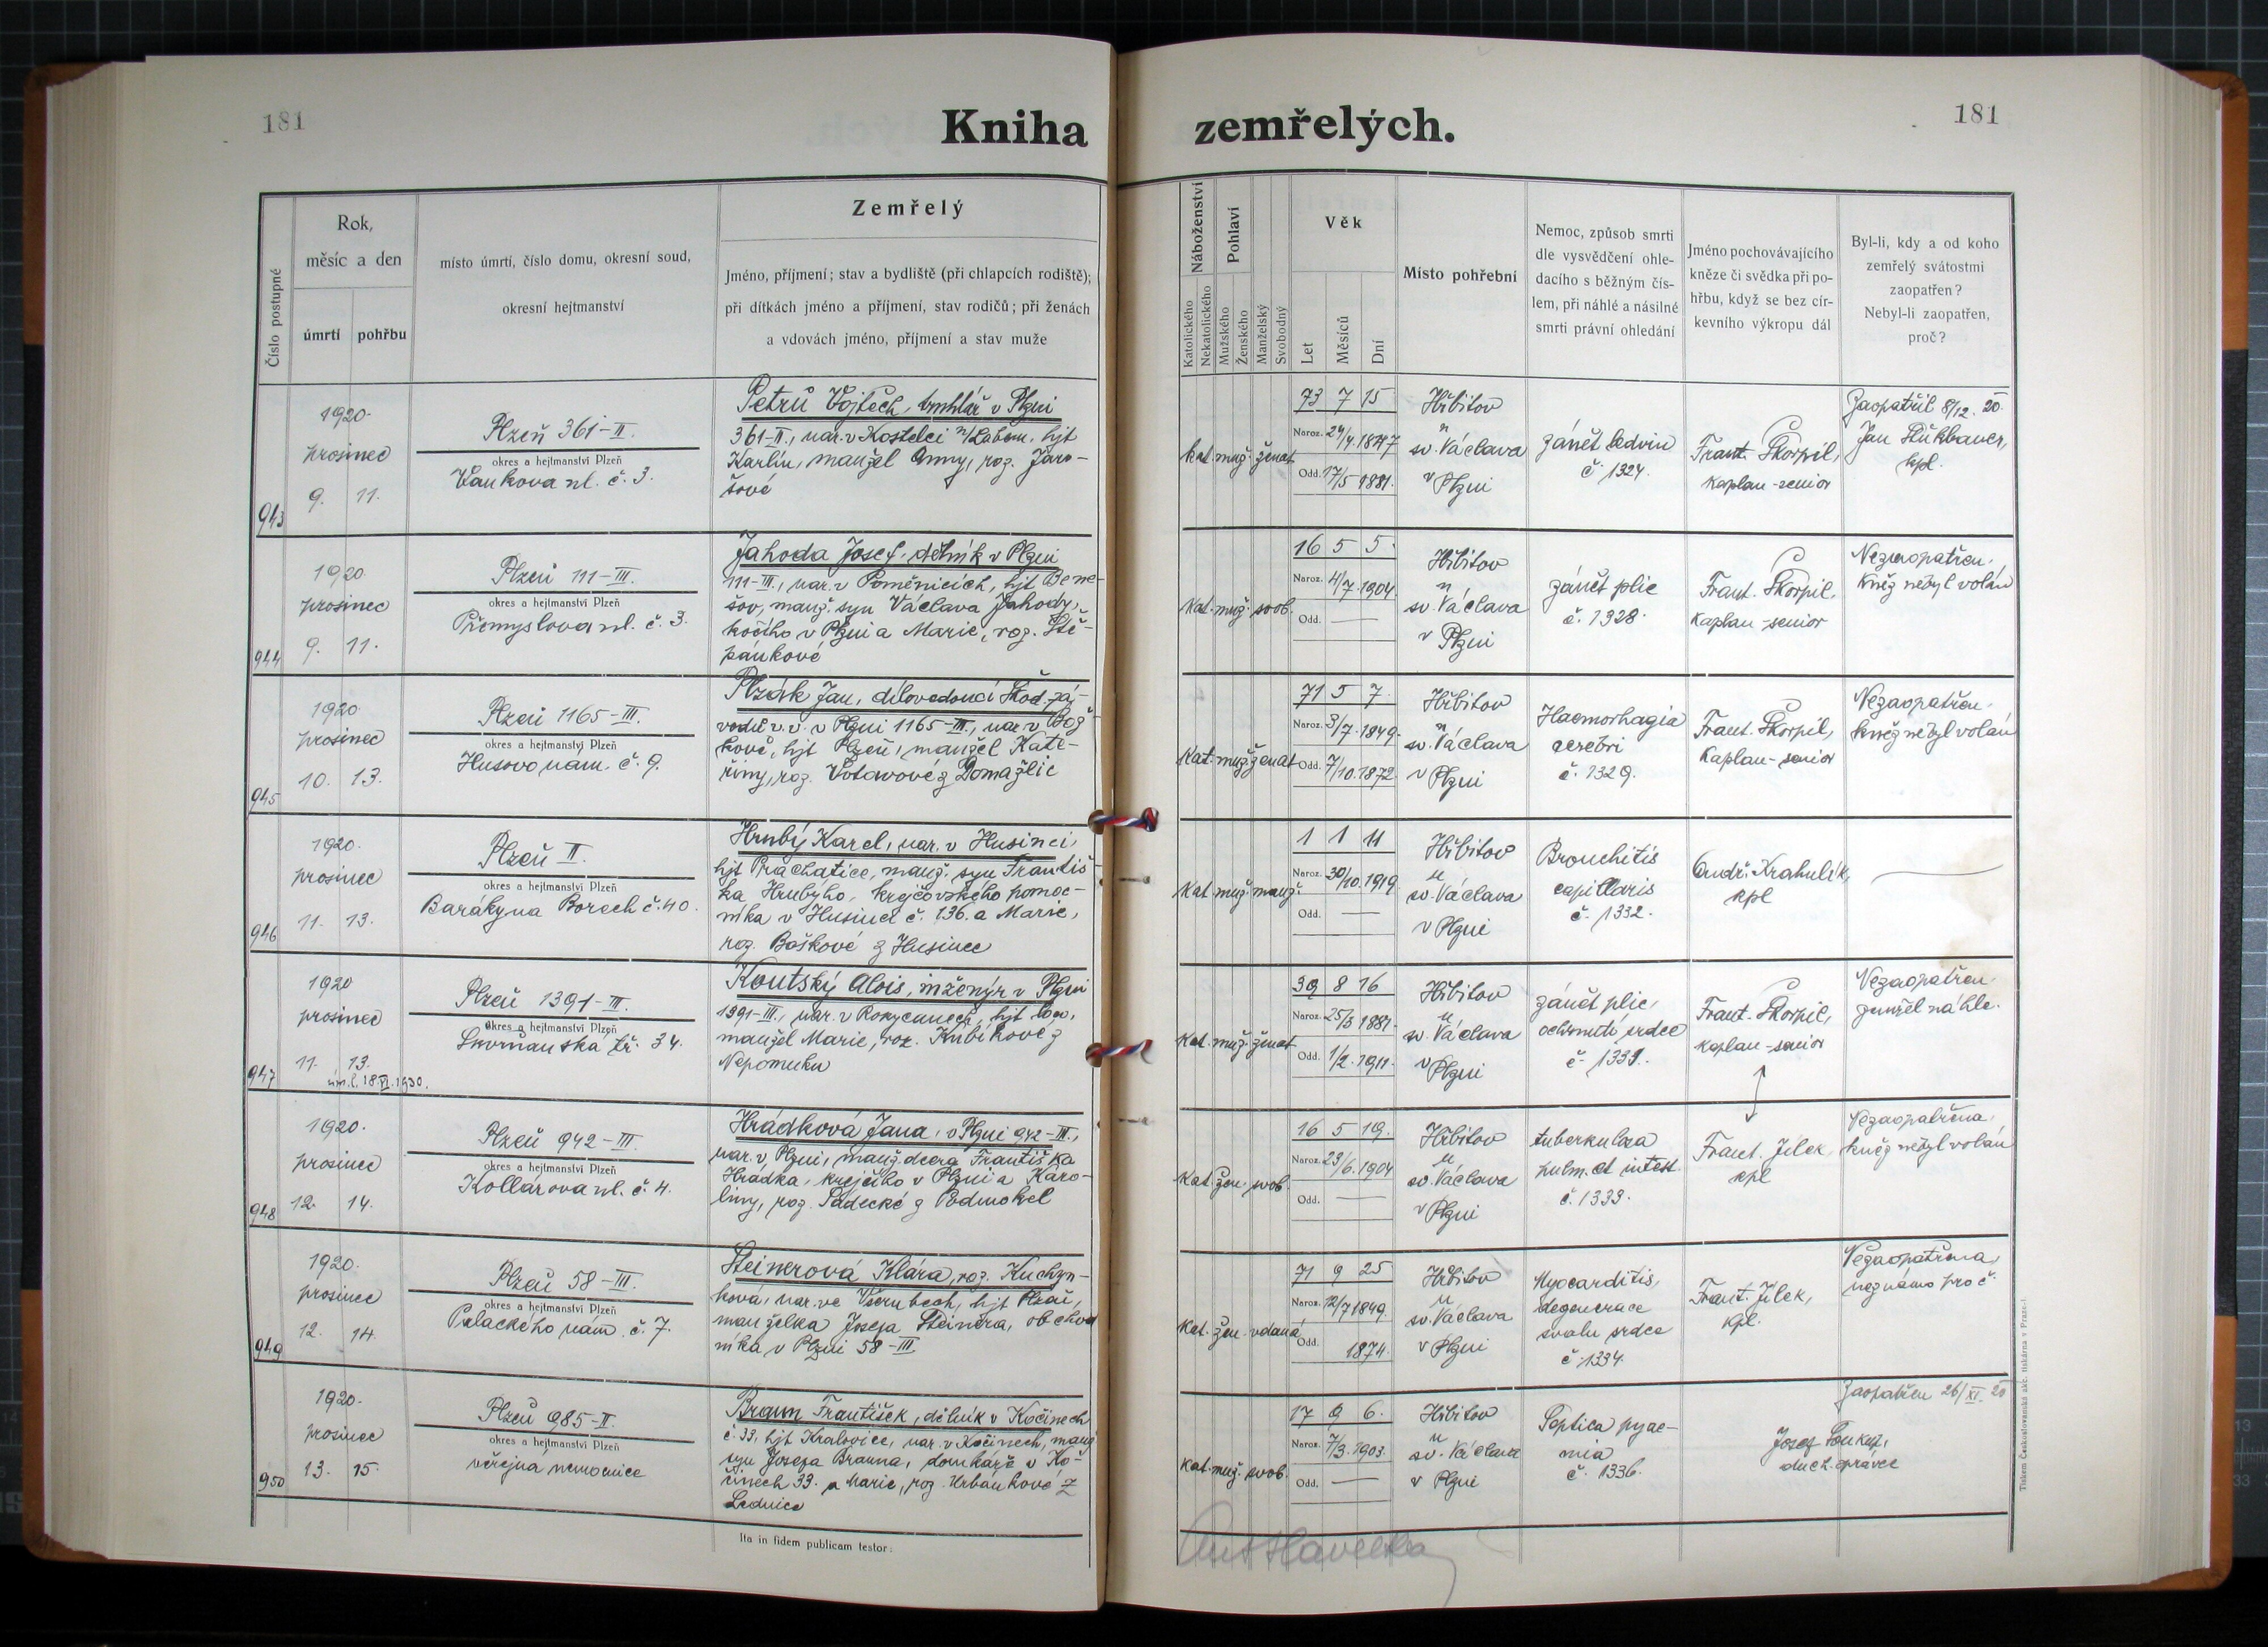 181
Kniha zemřelých.
181
Číslo postupné
Rok,
měsíc a den
úmrtí
pohřbu
místo úmrtí, číslo domu, okresní soud,
okresní hejtmanství
Zemřelý
Jméno, příjmení; stav a bydliště (při chlapcích rodiště);
při dítkách jméno a příjmení, stav rodičů; při ženách
a vdovách jméno, příjmení a stav muže
Náboženství
Katolického
Nekatolického
Pohlaví
Mužského
Ženského
Manželský
Svobodný
Věk
Let
Měsíců
Dní
Místo pohřební
Nemoc, způsob smrti
dle vysvědčení ohle-
dacího s běžným čís-
lem, při náhlé a násilné
smrti právní ohledání
Jméno pochovávajícího
kněze či svědka při po-
hřbu, když se bez cír-
kevního výkropu dál
Byl-li, kdy a od koho
zemřelý svátostmi
zaopatřen?
Nebyl-li zaopatřen,
proč?
943
1920.
prosinec
9. 11.
Plzeň 361-II.
okres a hejtmanství Plzeň
Vaňkova ul. č. 3.
Petrů Vojtěch, truhlář v Plzni
361-II., nar. v Kostelci n/Labem, hjt
Karlín, manžel Anny, roz. Jaro-
šové
kat. muž. ženat
73 7 15
Naroz. 24/4. 1847
Odd. 17/5 1881.
Hřbitov
u
sv. Václava
v Plzni
zánět ledvin
č. 1324.
Frant. Škorpil,
kaplan-senior
Zaopatřil 8/12. 20.
Jan
kpl.
944
1920.
prosinec
9. 11.
Plzeň 111-III.
okres a hejtmanství Plzeň
Přemyslova ul. č. 3.
Jahoda Josef, dělník v Plzni
111-III., nar. v Poměnicích, hjt Bene-
šov, manž. syn Václava Jahody,
kočího v Plzni a Marie, roz. Ště-
pánkové
kat. muž. svob.
16 5 5.
Naroz. 4/7. 1904
Odd. —
Hřbitov
u
sv. Václava
v Plzni
zánět plic
č. 1328.
Frant. Škorpil,
kaplan-senior
Nezaopatřen.
Kněz nebyl volán
945
1920.
prosinec
10. 13.
Plzeň 1165-III.
okres a hejtmanství Plzeň
Husovo nám. č. 9.
Plzák Jan, dílovedoucí Škod. zá-
vodů v. v. v Plzni 1165-III., nar. v Bož-
kově, hjt Plzeň, manžel Kate-
řiny, roz. Votavové z Domažlic
kat. muž. ženat
71 5 7.
Naroz. 3/7. 1849.
Odd. 7/10. 1872.
Hřbitov
u
sv. Václava
v Plzni
Haemorhagia
cerebri
č. 1329.
Frant. Škorpil,
kaplan-senior
Nezaopatřen.
kněz nebyl volán
946
1920.
prosinec
11. 13.
Plzeň II.
okres a hejtmanství Plzeň
Baráky na Borech č. 40.
Hrubý Karel, nar. v Husinci,
hjt Prachatice, manž. syn Františ-
ka Hrubýho, krejčovského pomoc-
níka v Husinci č. 136. a Marie,
roz. Boškové z Husince
kat. muž. manž.
1 1 11
Naroz. 30/10. 1919.
Odd. —
Hřbitov
u
sv. Václava
v Plzni
Bronchitis
capillaris
č. 1332.
Ondř. Krahulík,
kpl
947
1920
prosinec
11. 13.
úm. l. 18.VI.1930.
Plzeň 1391-III.
okres a hejtmanství Plzeň
Skvrňanská tř. 34.
Koutský Alois, inženýr v Plzni
1391-III., nar. v Rokycanech, hjt
manžel Marie, roz. Kubíkové z
Nepomuku
kat. muž. ženat
39 8 16
Naroz. 25/3 1881.
Odd. 1/2. 1911.
Hřbitov
u
sv. Václava
v Plzni
zánět plic,
ochrnutí srdce
č. 1331.
Frant. Škorpil,
kaplan-senior
Nezaopatřen.
zemřel náhle.
948
1920.
prosinec
12. 14.
Plzeň 942-III.
okres a hejtmanství Plzeň
Kollárova ul. č. 4.
Hrádková Jana, v Plzni 942-III.,
nar. v Plzni, manž. dcera Františka
Hrádka, krejčího v Plzni a Karo-
liny, roz. Sádecké z Podmokel
kat. žen. svob.
16 5 19.
Naroz. 23/6. 1904
Odd. —
Hřbitov
u
sv. Václava
v Plzni
tuberkulosa
pulm. et intest.
č. 1333.
Frant. Jílek,
kpl
Nezaopatřena,
kněz nebyl volán
949
1920.
prosinec
12. 14.
Plzeň 58-III.
okres a hejtmanství Plzeň
Palackého nám. č. 7.
Steinerová Klára, roz. Kuchyn-
ková, nar. ve Všerubech, hjt Plzeň,
manželka Josefa Steinera, obchod
níka v Plzni 58-III.
kat. žen. vdaná
71 9 25
Naroz. 12/7 1849.
Odd. 1874.
Hřbitov
u
sv. Václava
v Plzni
Myocarditis,
degenerace
svalu srdce
č. 1334.
Frant. Jílek,
kpl.
Nezaopatřena,
neznámo proč.
950
1920.
prosinec
13. 15.
Plzeň 985-II.
okres a hejtmanství Plzeň
veřejná nemocnice
Braum František, dělník v Kočínech
č. 33, hjt Kralovice, nar. v Kočínech, manž
syn Josefa Brauna, domkáře v Ko-
čínech 33. a Marie, roz. Urbánkové z
Lednice
kat. muž. svob.
17 9 6.
Naroz. 7/3. 1903.
Odd. —
Hřbitov
u
sv. Václava
v Plzni
Septica pyae-
mia
č. 1336.
Zaopatřen 26/XI. 20
Josef Soukup,
duch. správce
Ita in fidem publicam testor:
Tiskem Českoslovanská akc. tiskárna v Praze-I.